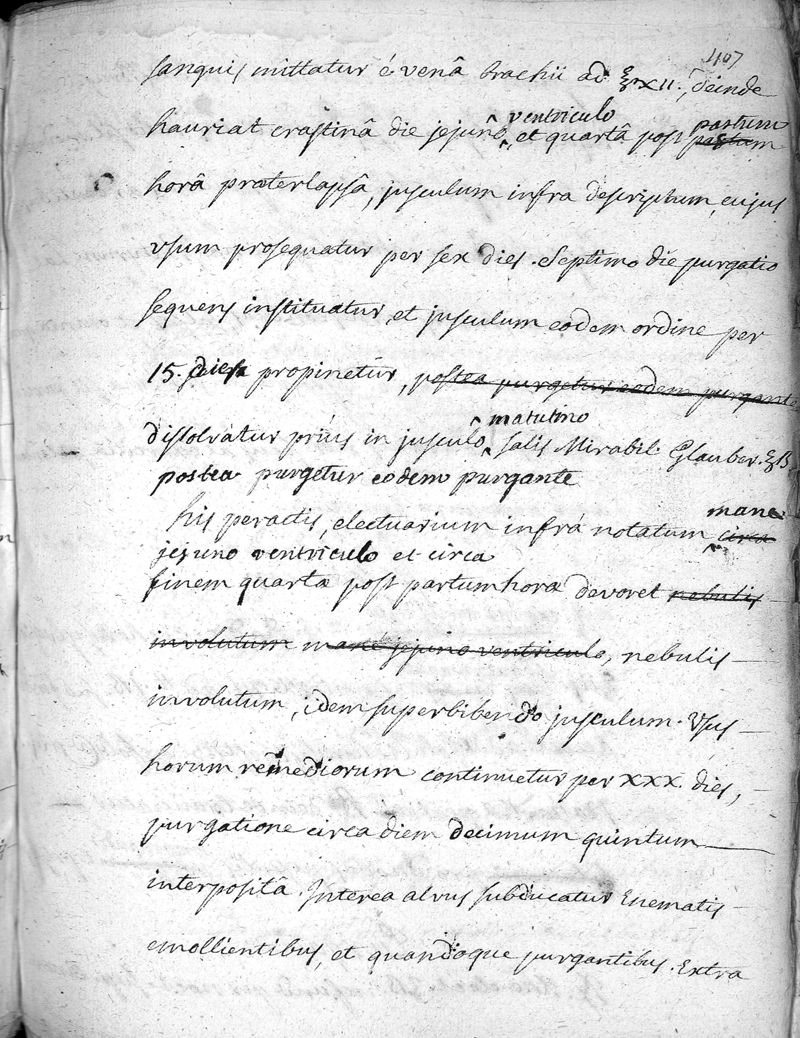 407
sanquis mittatur é venâ brachii ad ℥ XII., deinde
ventriculo pastum
hauriat crastinâ die jejunô, et quartâ post pastum
horâ praeterlapsâ, jusculum infra descriptum, cujus
vsum prosequatur per sex dies. Septimo die purgatio
sequens instituatur, et jusculum eodem ordine per
15. dies propinetur, postea purgetur eodem purgante
matutino
dissolvatur priùs in jusculô salis Mirabil. Glauber. ℥ß
postea purgetur eodem purgante
mane
his peractis, electuarium infrà notatum circa
jejuno ventriculo et circa
finem quartae post partum horae devoret nebulis
involutum mane jejuno ventriculo, nebulis
involutum, idem superbibendo jusculum. Vsus
horum remediorum continuetur per XXX. dies,
purgatione circa diem decimum quintum
interpositâ. Interea alvus subducatur Enematis
emollientibus, et quandoque purgantibus. Extra